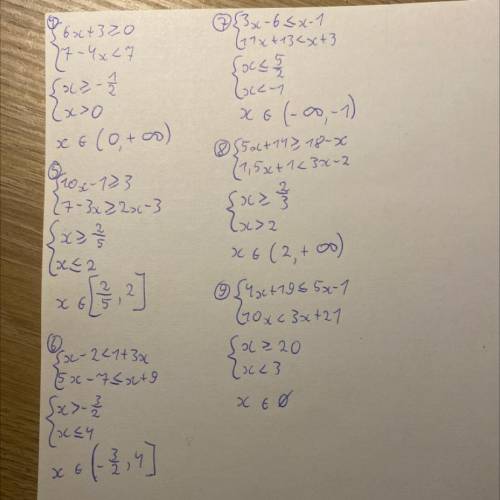 ④
{6x+3≥0
7-4x<7
{x≥-1/2
x>0
x∈(0,+∞)
⑤
{10x-1≥3
7-3x≥2x-3
{x≥2/5
x≤2
x∈[2/5,2]
⑥
{x-2<1+3x
5x-7≤x+9
{x>-3/2
x≤4
x∈(-3/2,4]
⑦{3x-6≤x-1
11x+13<x+3
{x≤5/2
x<-1
x∈(-∞,-1)
⑧{5x+14≥18-x
1,5x+1<3x-2
{x≥2/3
x>2
x∈(2,+∞)
⑨{4x+19≤5x-1
10x<3x+21
{x≥20
x<3
x∈∅